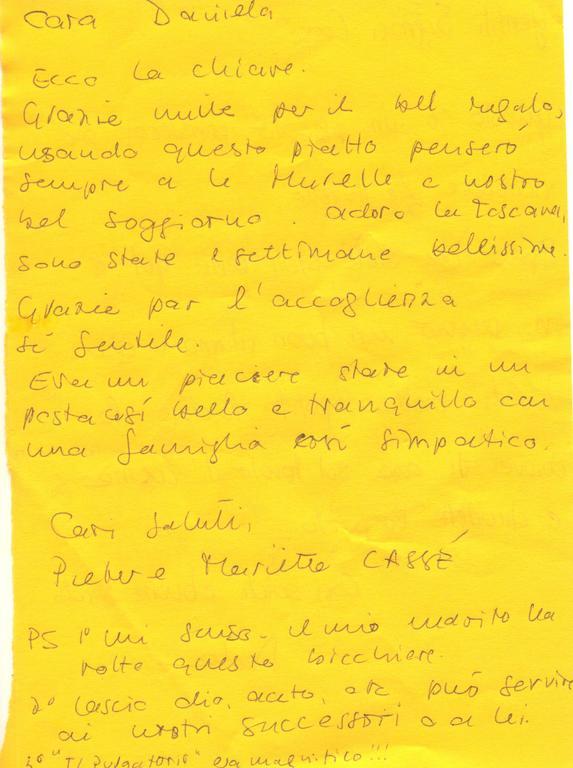 Cara Daniela
Ecco la chiave.
Grazie mille per il bel regalo,
usando questo piatto penseró
sempre a le Murelle e nostro
bel soggiorno. adoro la Toscana,
sono state 2 settimane bellissime.
Grazie par l'accoglienza
sí gentile
Era un piaciere stare in un
posta così bello e tranquillo con
una famiglia così simpatico.
Cari saluti,
Pieter e Mariette CASSÉ
PS 1° mi scusa. il mio marito ha
rotto questo bicchiere.
2° lascio olio, aceto, etc può servire
ai nostri successori o a lei.
3° "Il Purgatorio" era magnifico!!!